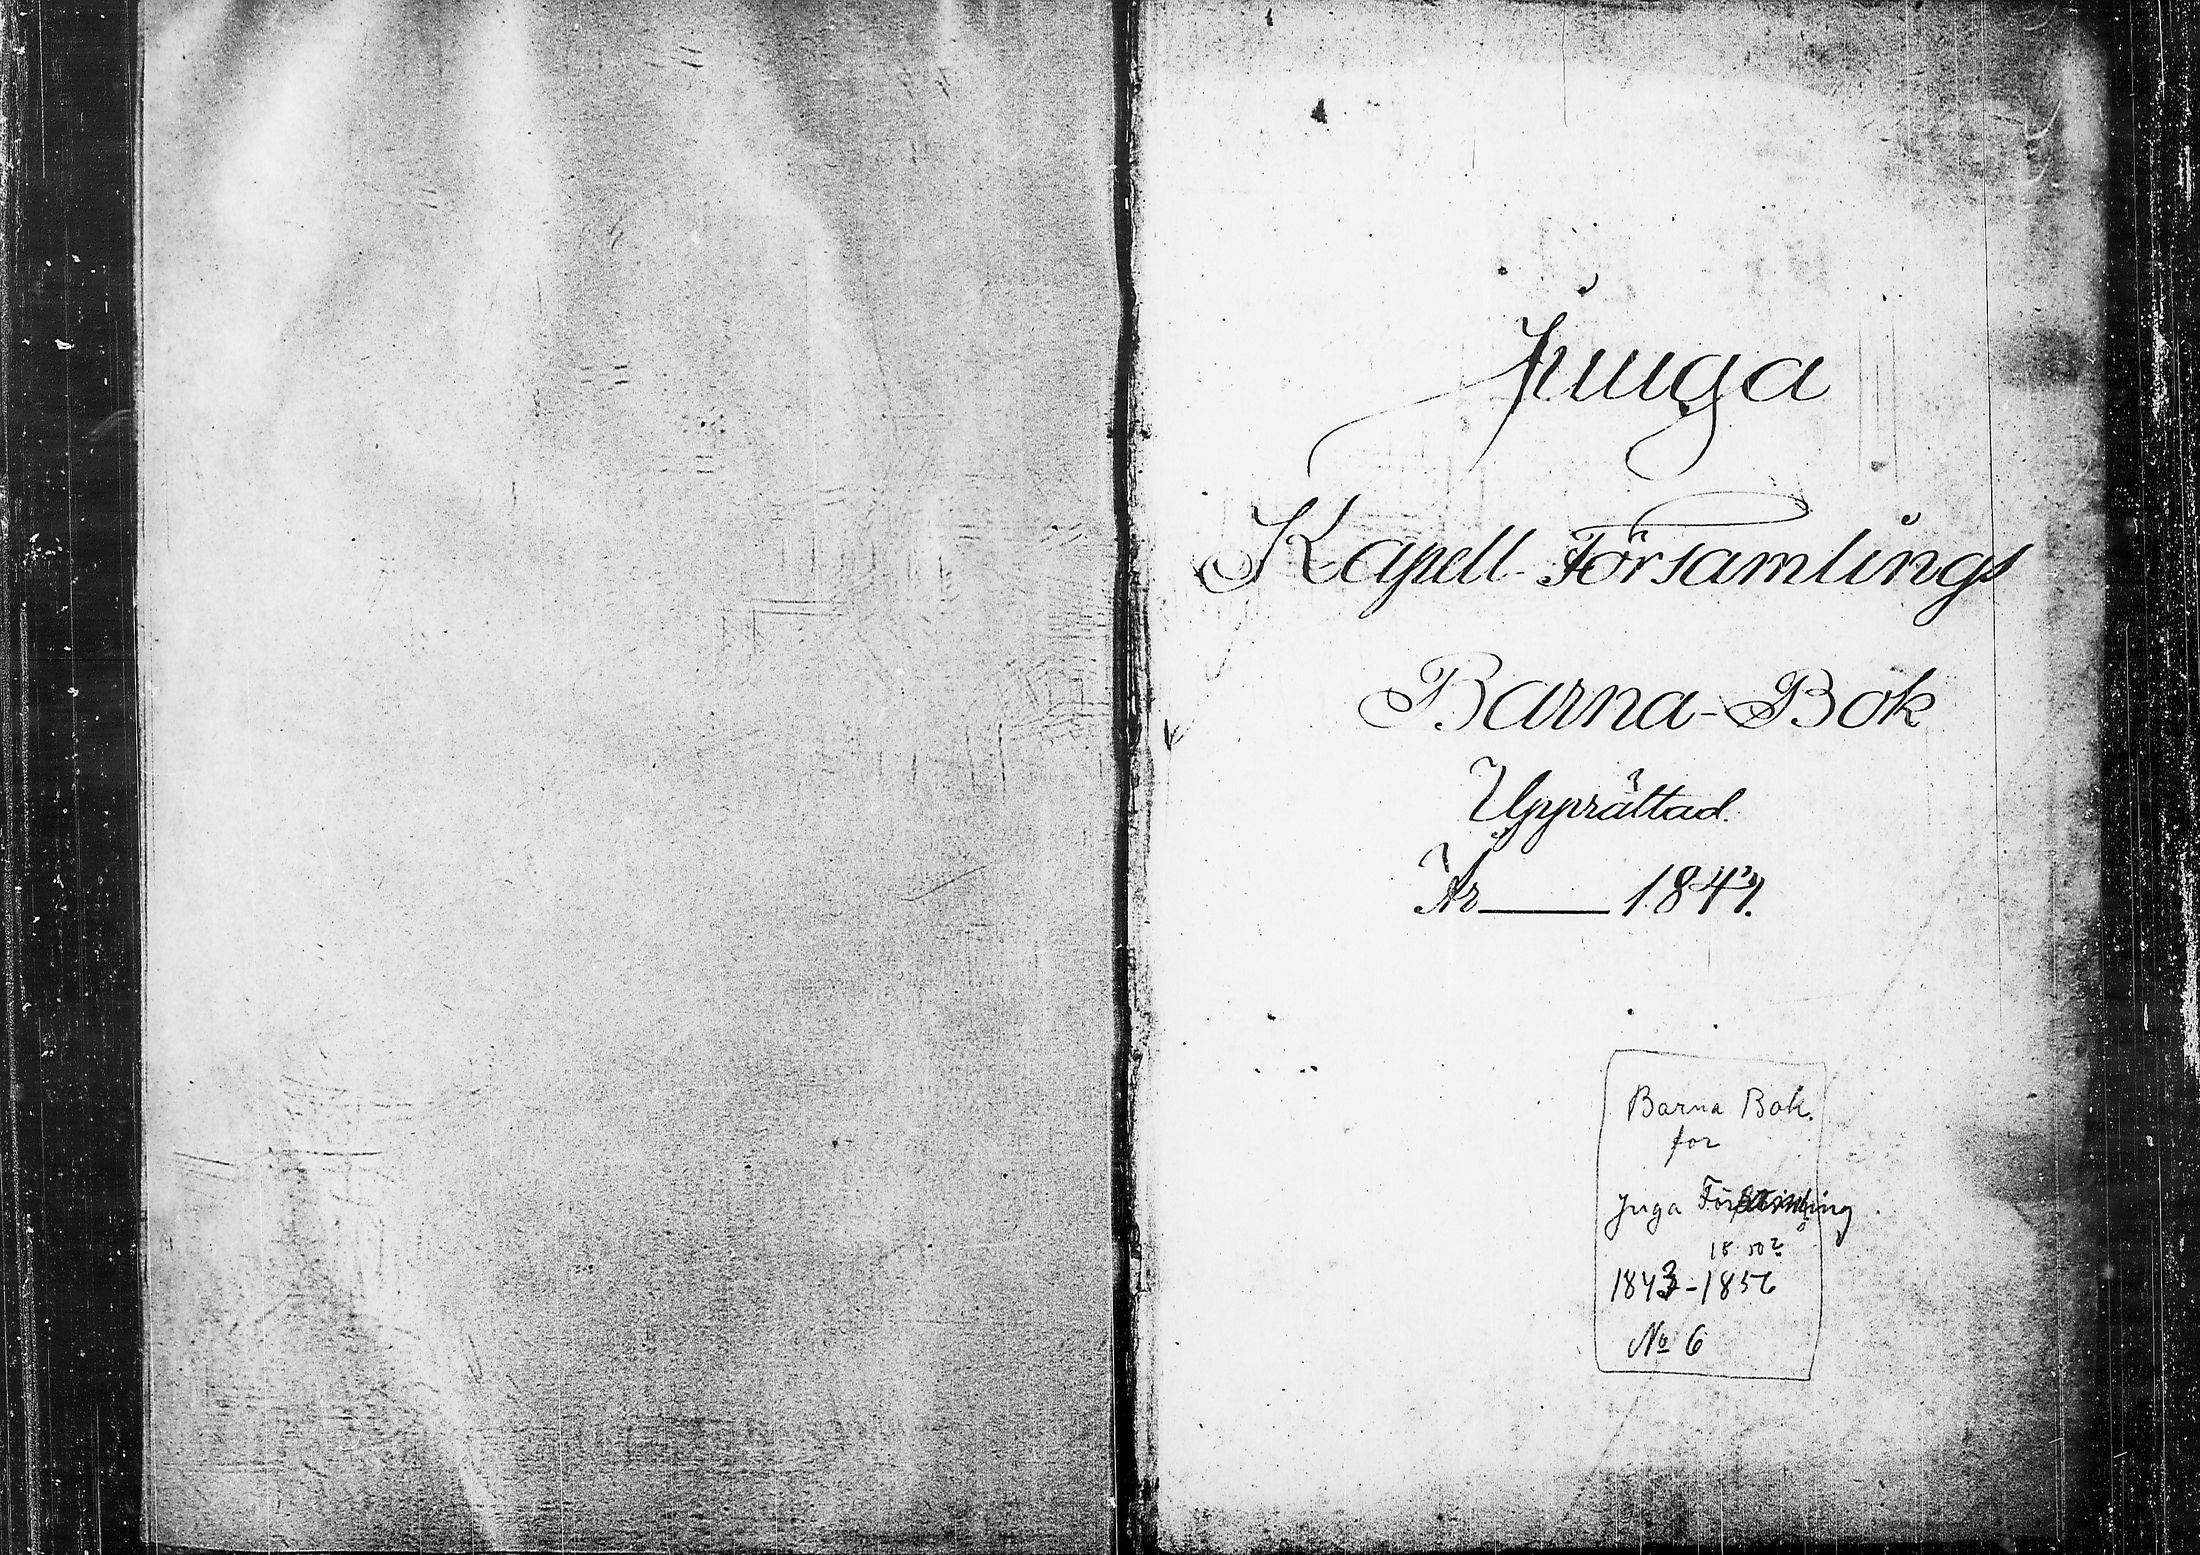 Juuga
Kapell-Församlings
Barna-Bok
Upprättad.
År 
Barna Bok.
for
Juga Församling
1843-1856
No 6